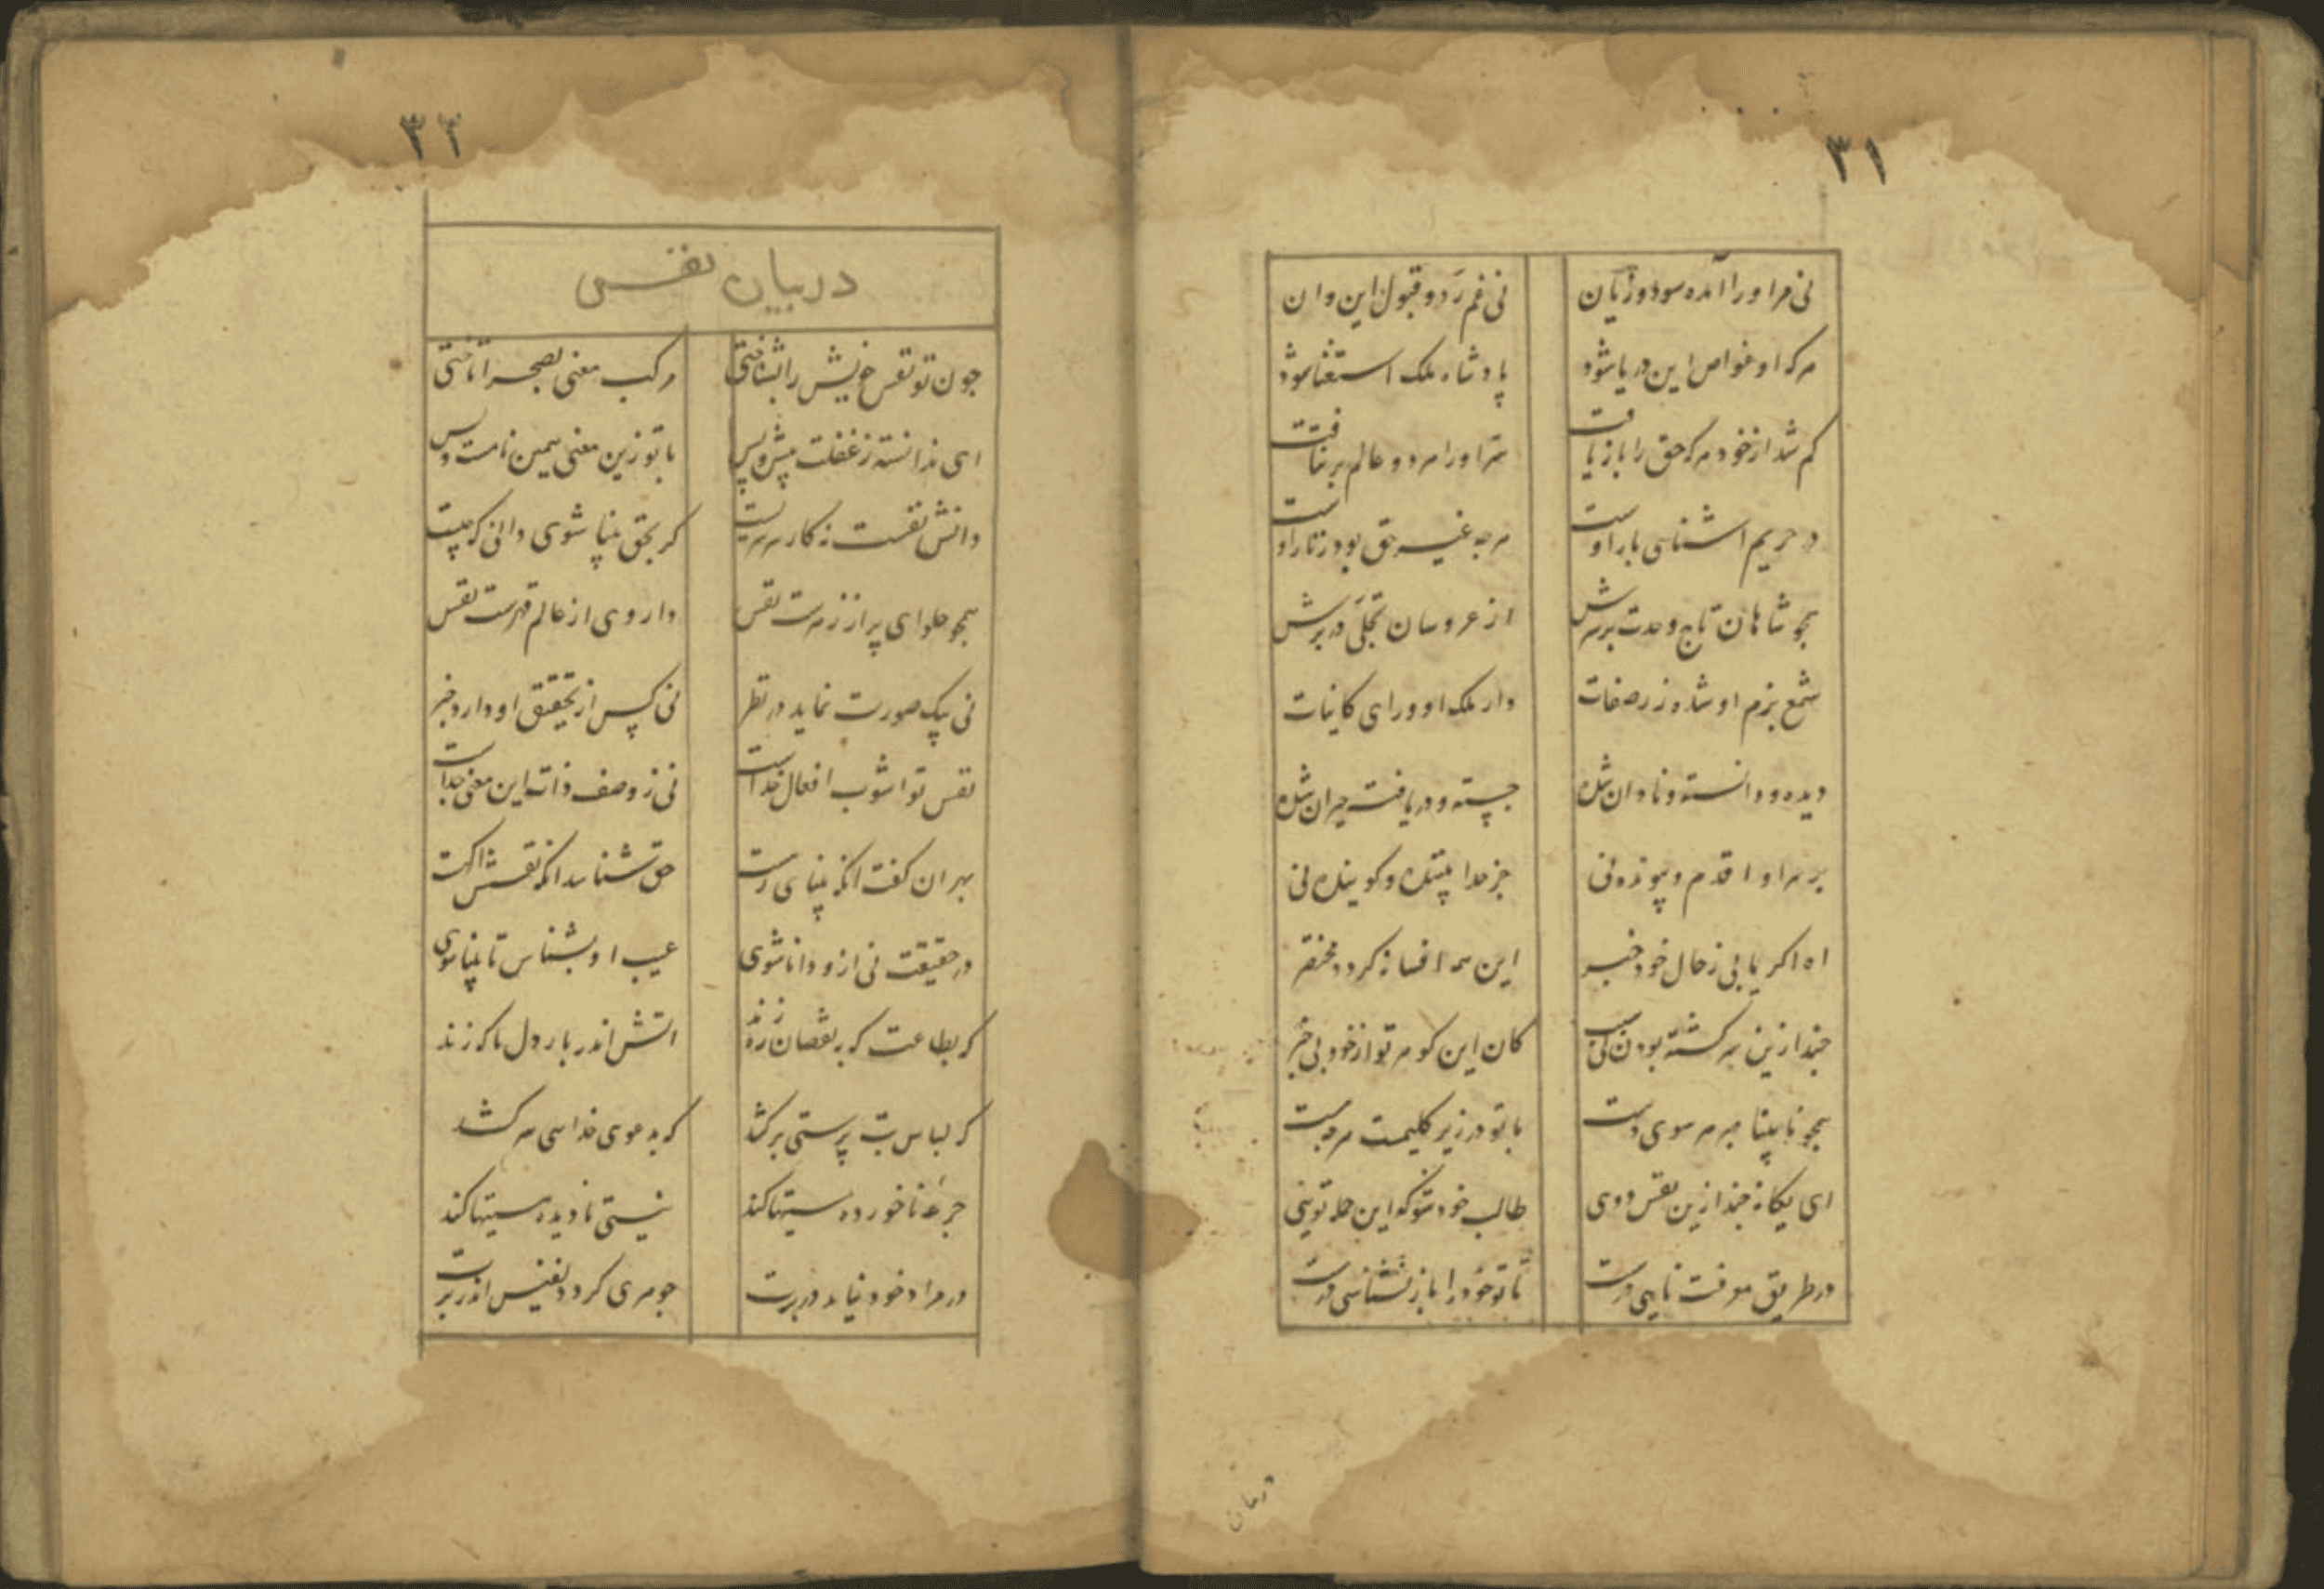 ۳۱
نی مر او را آمده سود و زیان
نی غم رد و قبول این و ان
هرکه او غواص این دریا شود
پادشاه ملک استغنا شود
کم شد از خود هرکه حق را بازیافت
سر او را هر دو عالم برنتافت
در حریم اشنایی بار اوست
هرجه غیر حق بود زنار اوست
همجو شاهان تاج وحدت بر سرش
از عروسان تجلی در برش
شمع بزم او شده نور صفات
دار ملک او ورای کاینات
دیده و دانسته و نادان شده
جسته و دریافته حیران شده
بر سر او اقدم و پیوند و نی
جز خدا بیننده و کوینده نی
اه اکر یابی ز حال خود خبر
این همه افسانه کردد مختصر
جند ازین سرکشته بودن
کان این کوهر تو از خود بی خبر
همجو نابینا مبر هر سوی دست
با تو در زیر کلیمست هرجه هست
ای یکانه جند ازین نقس دوی
طالب خود شو که این جمله تویی
در طریق معرفت نایی درست
تا تو خود را باز نشناسی درست
۳۲
در بیان نفس
جون تو نقس خویش را بشناختی
مرکب معنی بصحرا تاختی
ای ندانسته ز غفلت پیش و پس
با تو زین معنی همین نامست و بس
دانش نقست نه کار سرسریست
کر بحق بینا شوی دانی که جیست
همجو حلوای پر از زهرست نقس
داروی از عالم قهرست نقس
نی بیک صورت نماید در نظر
نی کس از تحقیق او دارد خبر
نقس تو اشوب افعال خداست
نی ز وصف ذات این معنی جداست
بهر ان کفت انکه بینای رهست
حق شناسد انکه نقسش اکهست
در حقیقت نی ازو دانا شوی
عیب او بشناس تا بینا شوی
که بطاعت که بنقصان ره زند
اتش اندر بار دل ناکه زند
که لباس بت پرستی برکشد
که بدعوی خدایی سر کشد
جرعه ناخورده مستیها کند
نیستی نادیده هستیها کند
در مراد خود نیاید در برت
جوهری کردد نفیس اندر برت